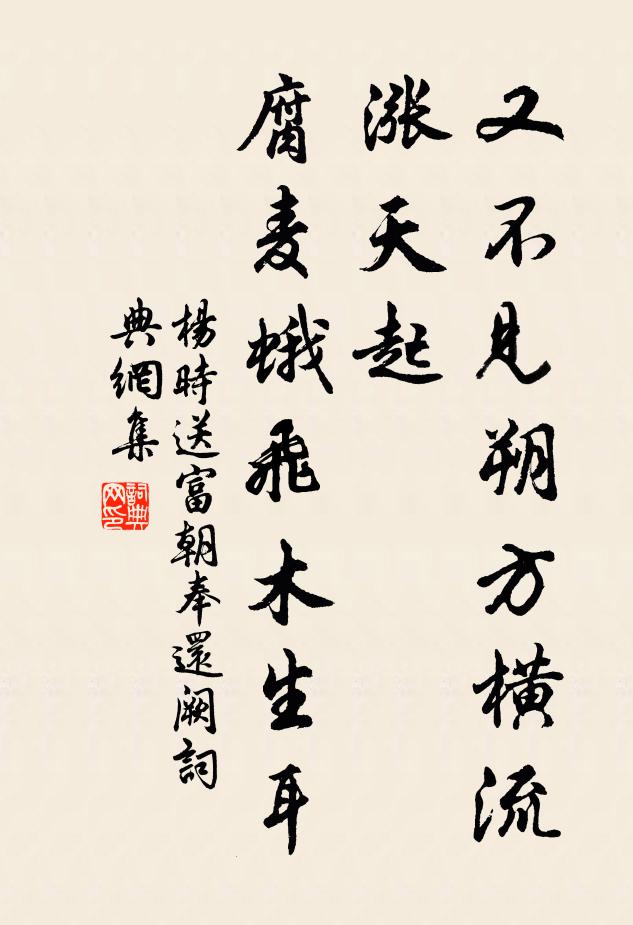 又不見朔方橫流
漲天起
腐麦蛾飛木生耳
楊時送富朝奉還阙詞
典網集
詞典網印